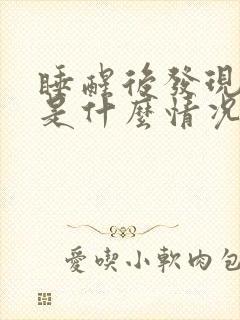 睡醒後發現
是什麼情況
愛喫小軟肉包